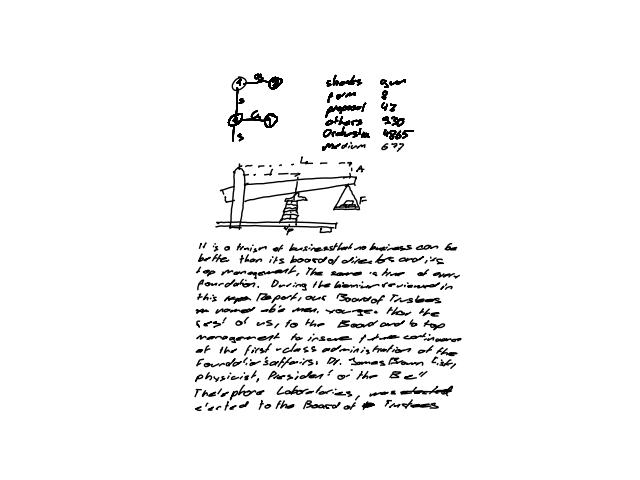 sheets gum
form 8
proposal 43
others 330
Orchestra 4865
medium 677
L
A
F
It is a truism of business that no business can be
better than its board of directors and its
top management. The same is true of every
foundation. During the biennium reviewed in
this Report, our Board of Trustees
named able men, younger than the
rest of us, to the Board and to top
management to insure future continuance
of the first-class administration of the
Foundation's affairs. Dr. James Brown Fisk,
physicist, President of the Bell
Thelephone Laboratories, was elected
elected to the Board of Trustees